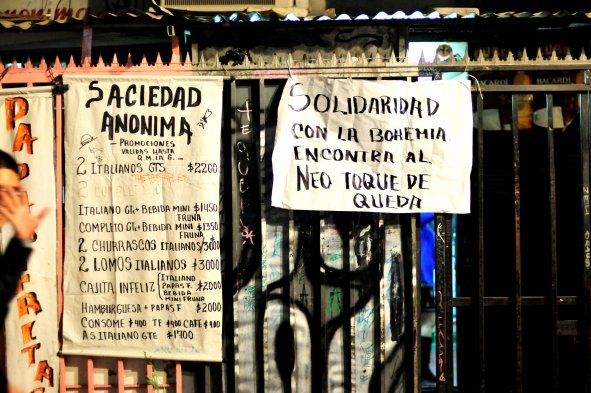 SACIEDAD
ANONIMA
- PROMOCIONES
VALIDAS HASTA
Q.M.LA G. -
2 ITALIANOS GTS $2200
ITALIANO GT+ BEBIDA MINI $1450
FRUNA
COMPLETO GT+ BEBIDA MINI $1350
FRUNA
2 CHURRASCOS ITALIANOS $3000
2 LOMOS ITALIANOS $3000
CAJITA INFELIZ ITALIANO
PAPAS F. $2000
BEBIDA
MINI FRUNA
HAMBURGUESA + PAPAS F $2000
CONSOME $400 TE $400 CAFE $400
AS ITALIANO GTE $1700
SOLIDARIDAD
CON LA BOHEMIA.
ENCONTRA AL
NEO TOQUE DE
QUEDA
BACARDI